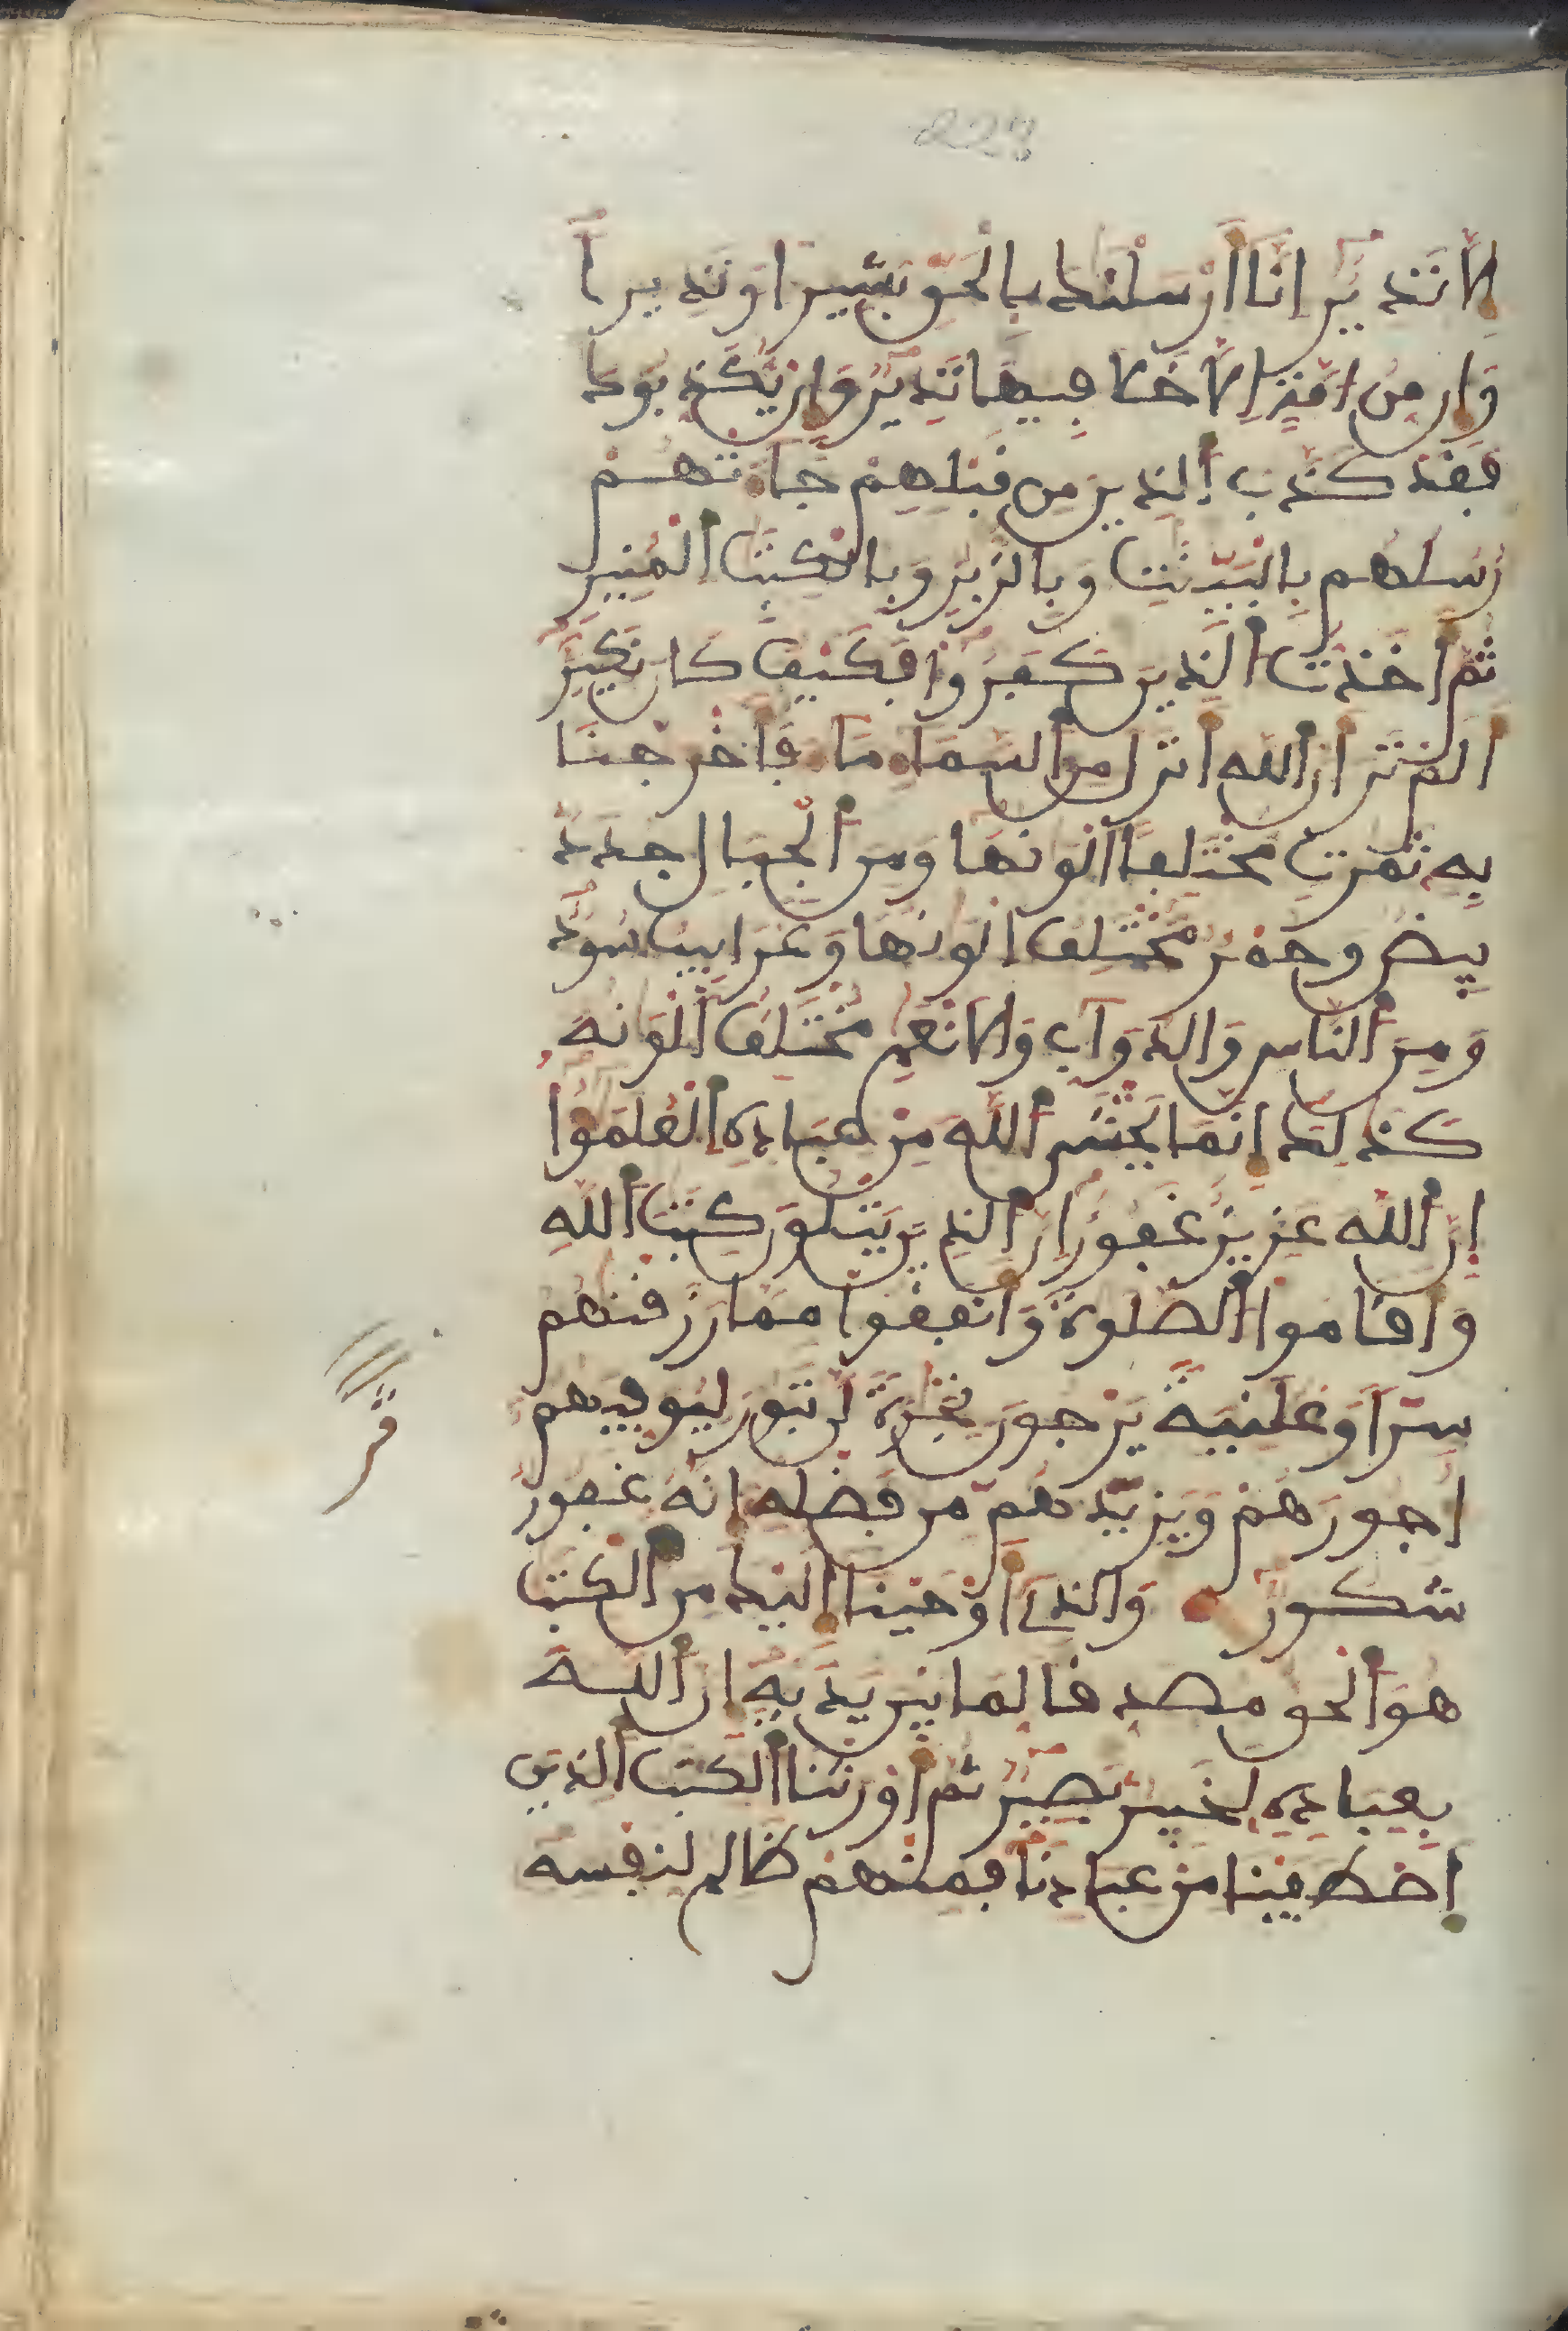 228
الا نذير انا ارسلنك بالحق بشيرا ونذيرا
وان من امة الا خلا فيها نذير وان يكذبوك
فقد كذب الذين من قبلهم جاتهم
رسلهم بالبينت وبالزبر وبالكتب المنير
ثم اخذت الذين كفروا فكيف كان نكير
الم تر ان الله انزل من السما ما فاخرجنا
به ثمرت مختلفا الونها ومن الجبال جدد
بيض وحمر مختلف الونها وغرابيب سود
ومن الناس والدواب والانعم مختلف الوانه
كذلك انما يخشى الله من عباده العلموا
ان الله عزيز غفور ان الذين يتلون كتب الله
واقاموا الصلوة وانفقوا مما رزقنهم
سرا وعلنية يرجون تجرة لن تبور ليوفيهم
اجورهم ويزيدهم من فضله انه غفور
شكور والذي اوحينا اليك من الكتب
هو الحق مصدقا لما بين يديه ان الله
بعباده لخبير بصير ثم اورثنا الكتب الذين
اصطفينا من عبادنا فمنهم ظالم لنفسه